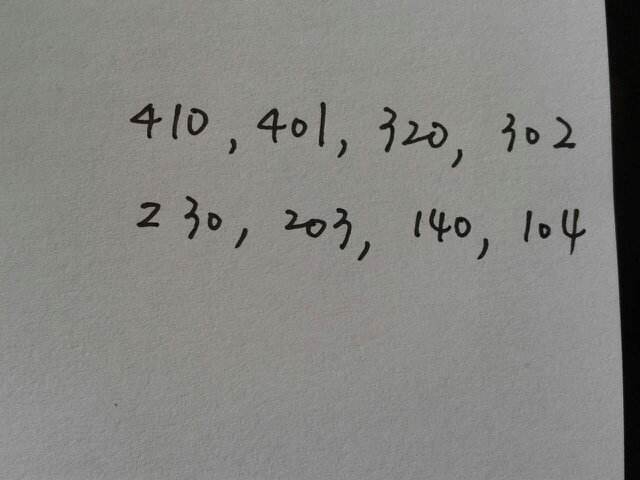 410, 401, 320, 302
230, 203, 140, 104